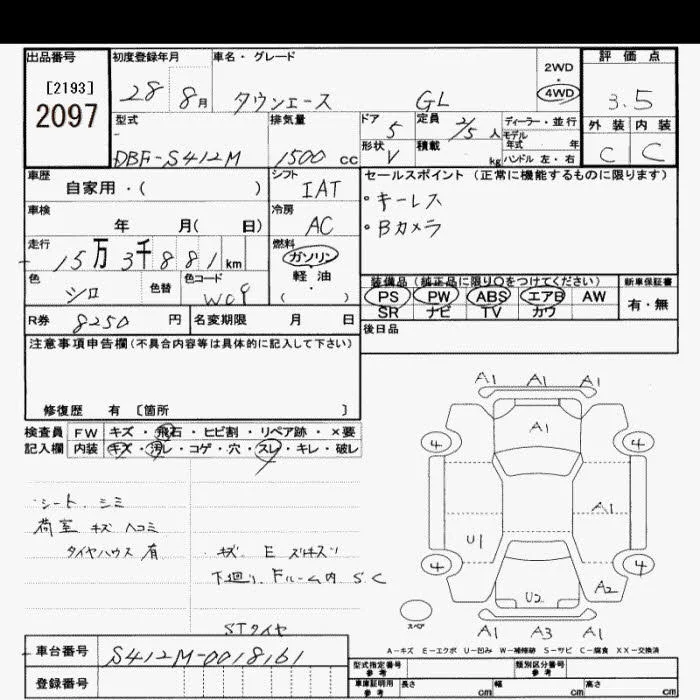 出品番号 初度登録年月 車名・グレード 2WD 評価点
[2193] 28 8月 タウンエース GL 4WD 3.5
2097 型式 排気量 ドア 定員 ディーラー・並行 外装 内装
DBF-S412M 1500cc 5 2/5人 モデル年式 年 C C
形状 V 積載 kg ハンドル 左・右
車歴 シフト セールスポイント(正常に機能するものに限ります)
自家用・( ) IAT ・キーレス
車検 冷房 ・Bカメラ
年 月( 日) AC
走行 燃料
15万3千881km ガソリン
軽油
( )
色 色替 色コード 装備品(純正品に限り○をつけてください) 新車保証書
シロ W09 PS PW ABS エアB AW 有・無
SR ナビ TV カワ
R券 8250円 名変期限 月 日 後日品
注意事項申告欄(不具合内容等は具体的に記入して下さい)
修復歴 有 〔箇所 〕
検査員 FW キズ・飛石・ヒビ割・リペア跡・×要
記入欄 内装 キズ・汚レ・コゲ・穴・スレ・キレ・破レ
シート シミ
荷室 キズ ヘコミ
タイヤハウス 有
キズ E
下廻り Fルーム内 S C
STタイヤ
A1 A1 A1
A1
4 4
A1
U1
4 4
U2 A2
スペア
A1 A3 A1
A-キズ E-エクボ U-凹み W-補修跡 S-サビ C-腐食 XX-交換済
車台番号 S412M-0018161
登録番号
型式指定番号 参考 類別区分番号 参考
車庫証明用 参考 長さ cm 幅 cm 高さ cm